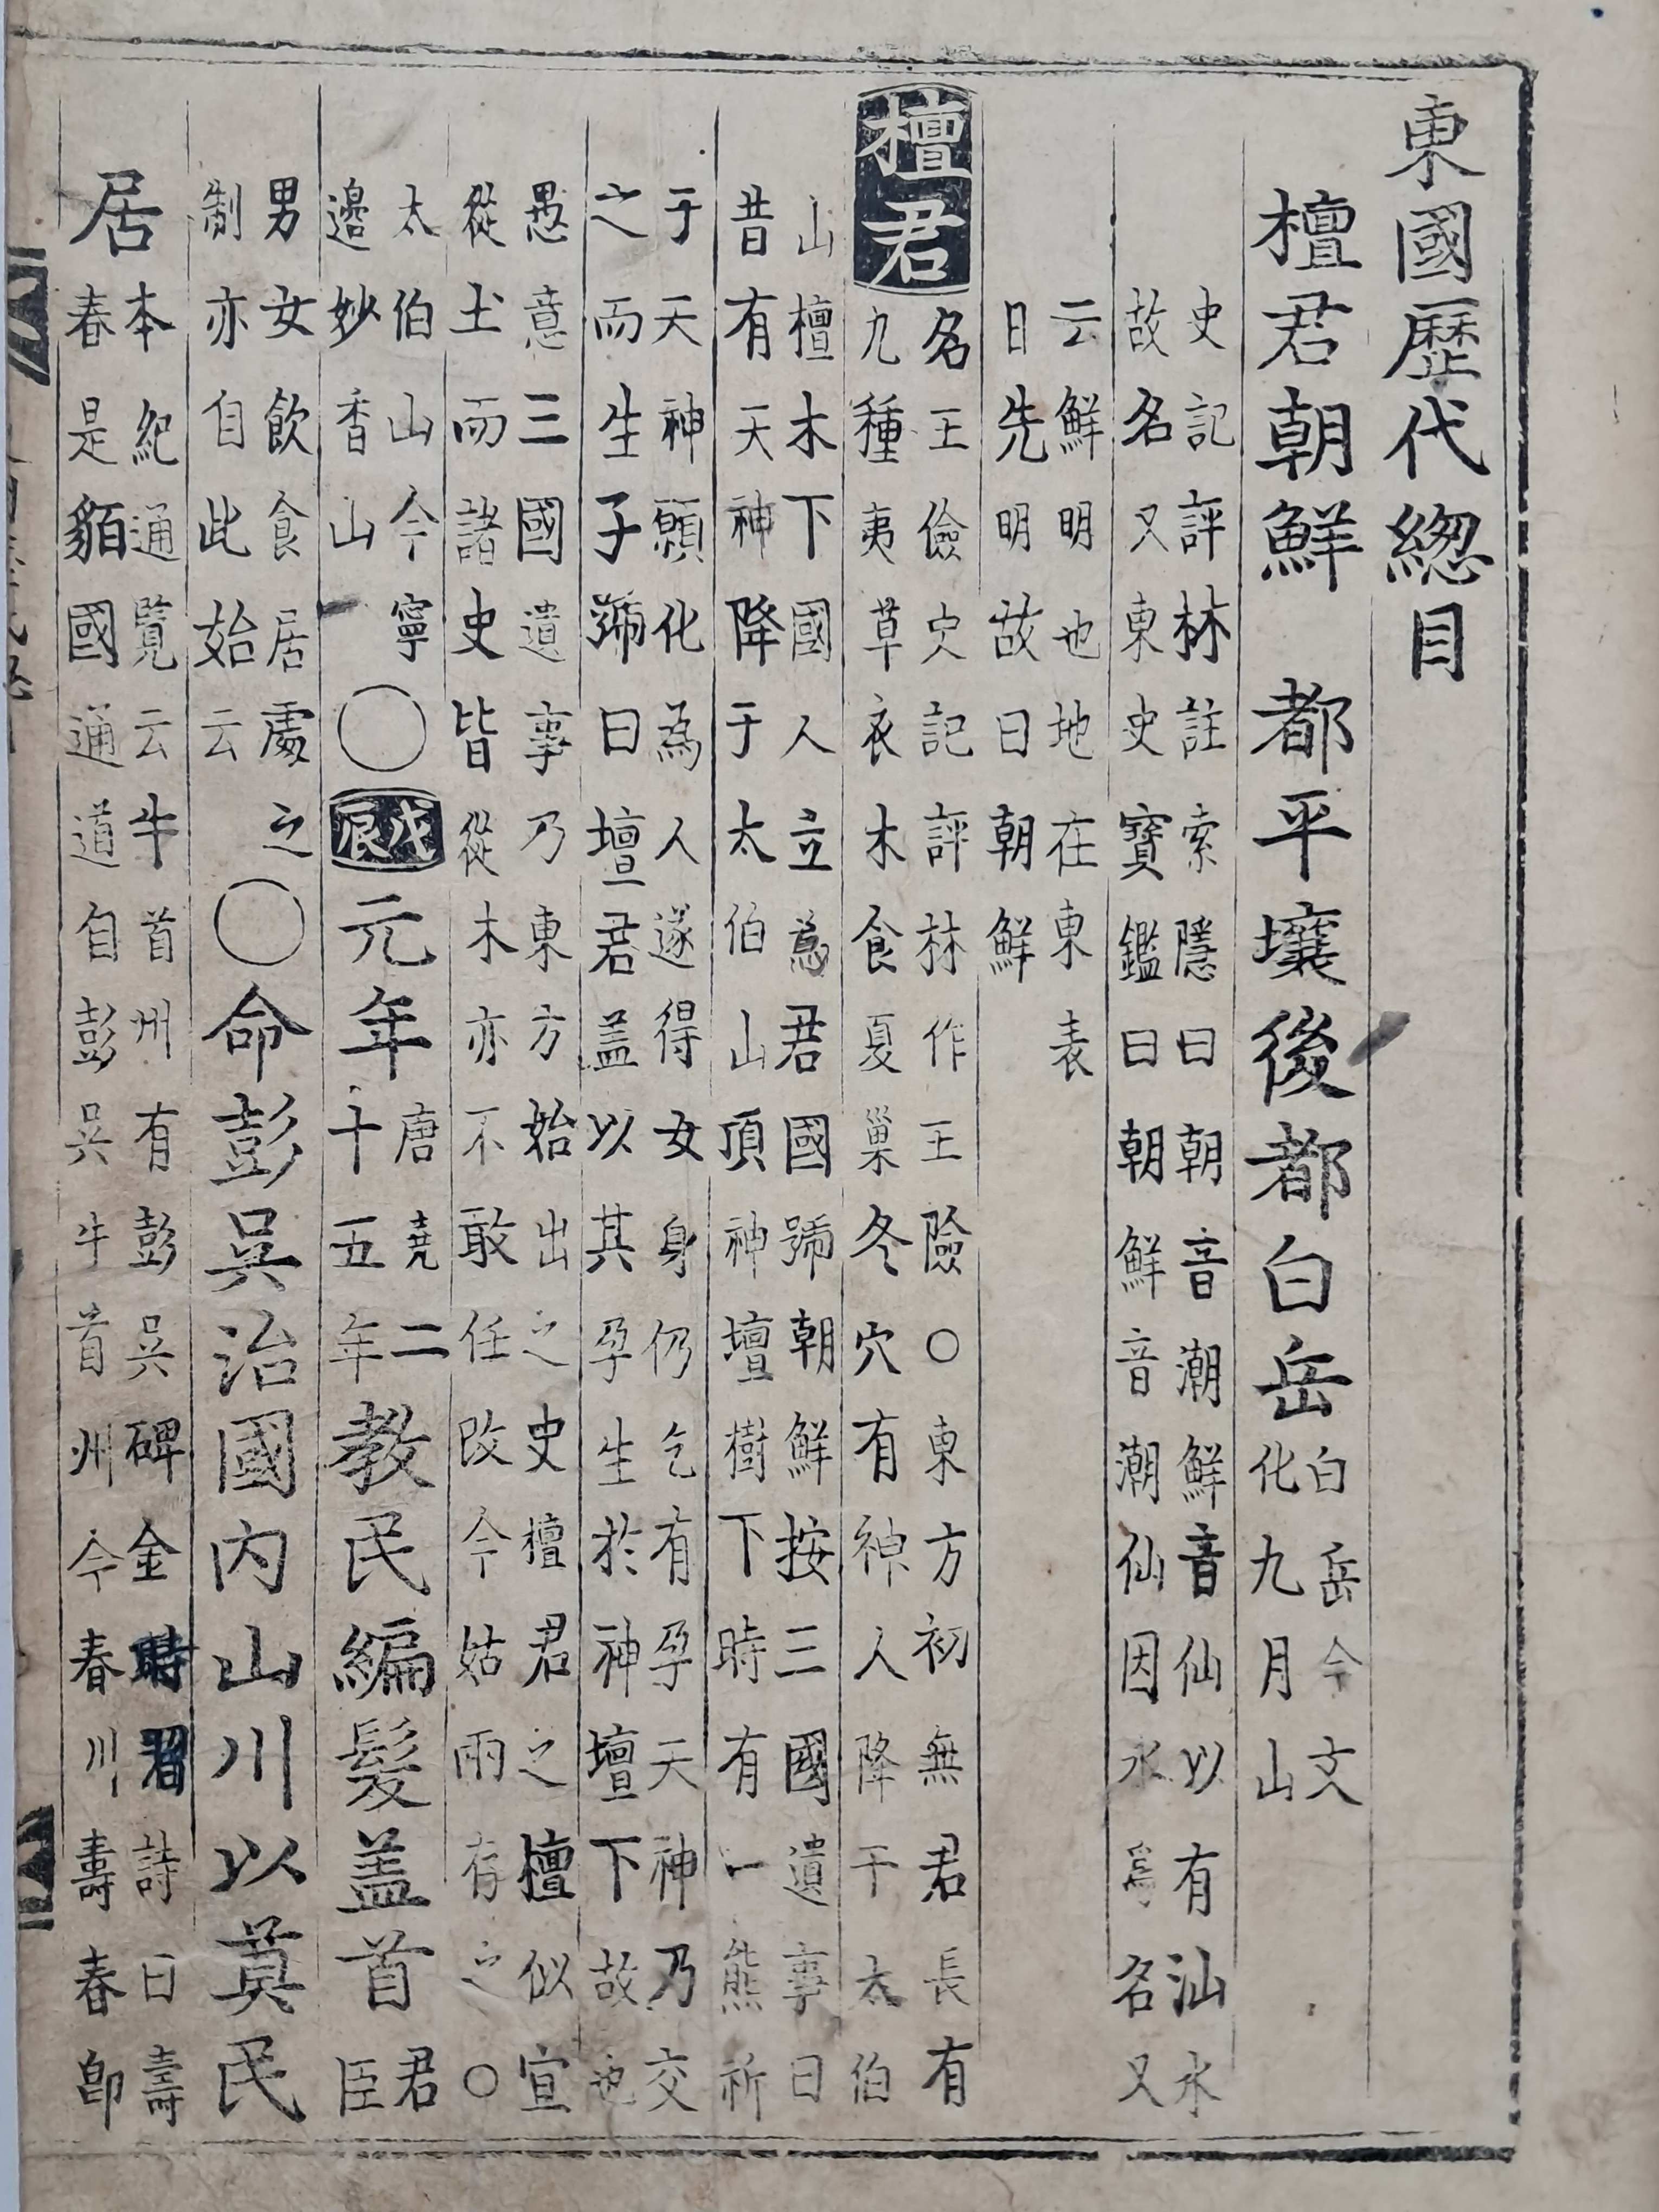 東國歷代總目
檀君朝鮮 都平壤後都白岳
白岳今文
化九月山
史記評林註索隱曰朝音潮鮮音仙以有汕水
故名又東史寶鑑曰朝鮮音潮仙因水爲名又
云鮮明也地在東表
日先明故曰朝鮮
檀君
名王儉史記評林作王險○東方初無君長有
九種夷草衣木食夏巢冬穴有神人降于太伯
山檀木下國人立爲君國號朝鮮按三國遺事曰
昔有天神降于太伯山頂神壇樹下時有一熊祈
于天神願化為人遂得女身仍乞有孕天神乃交
之而生子號曰壇君盖以其孕生於神壇下故也
愚意三國遺事乃東方始出之史檀君之檀似宜
從土而諸史皆從木亦不敢任改今姑兩存之○
太伯山今寧
邊妙香山
○戊辰元年
唐堯二
十五年
教民編髮盖首
君臣
男女飲食居處之
制亦自此始云
○命彭吳治國內山川以奠民
居
本紀通覽云牛首州有彭吳碑金時習詩曰壽
春是貊國通道自彭吳牛首州今春川壽春卽